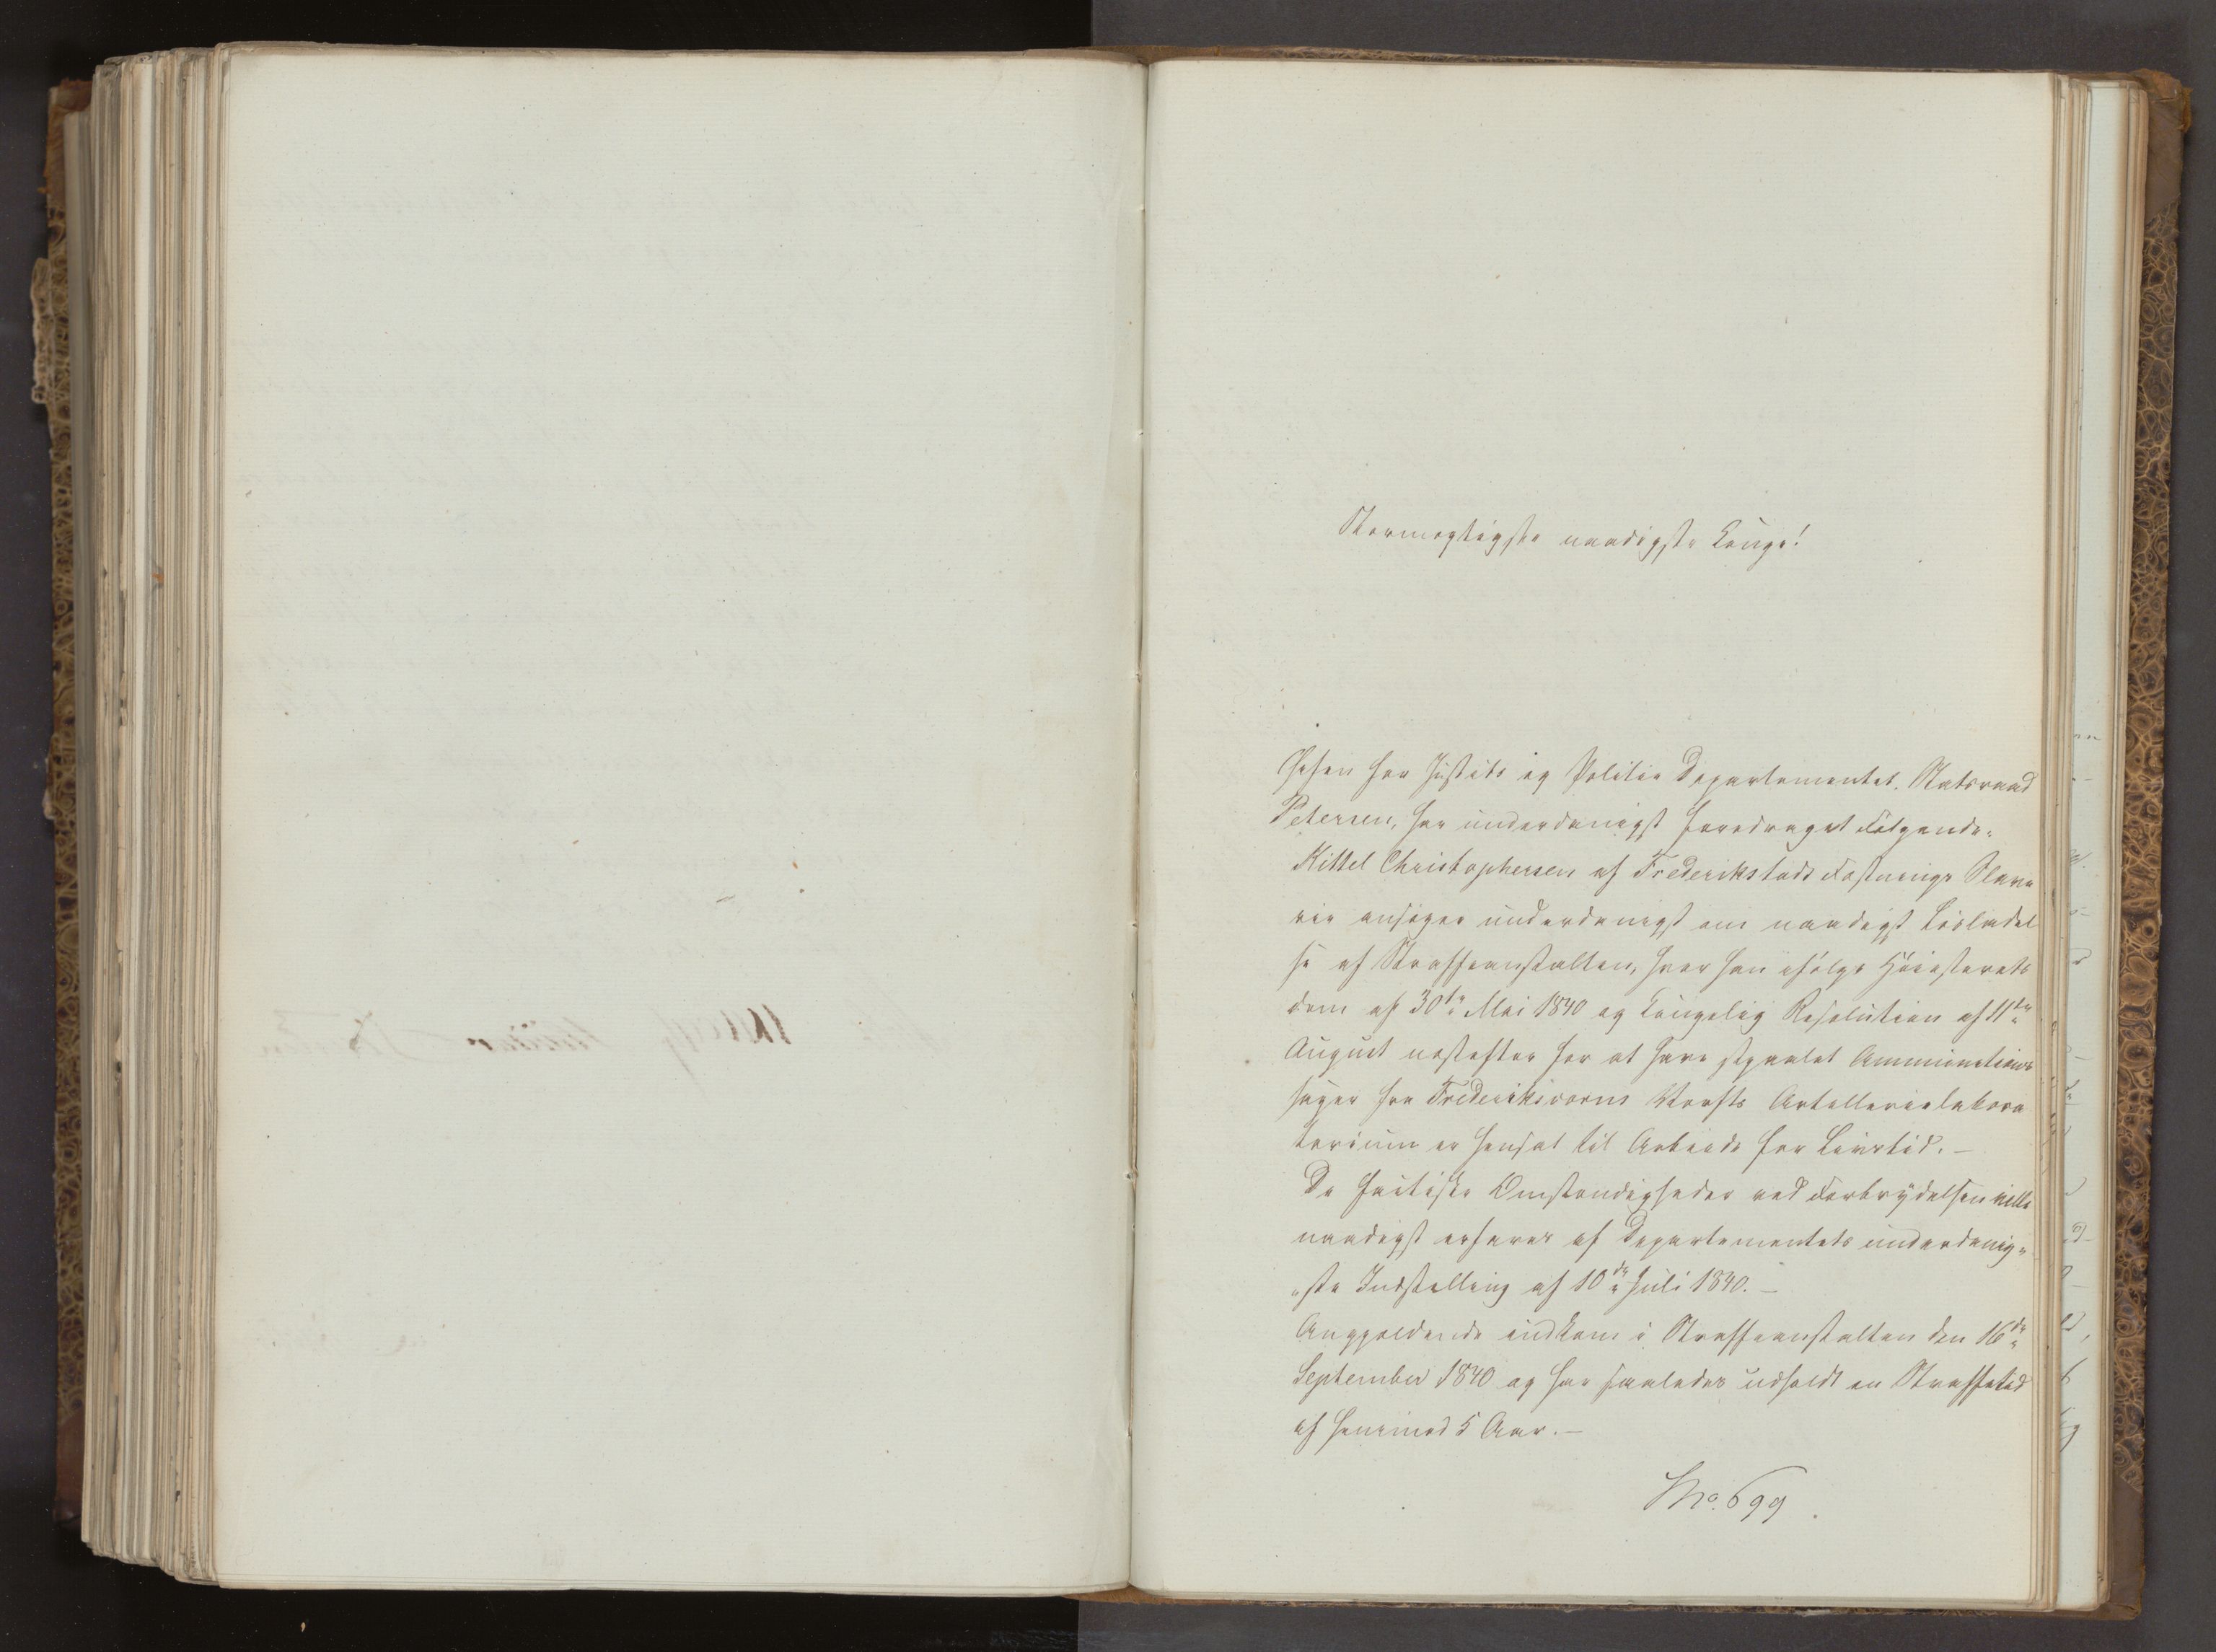 Stormægtigste naadigste Konge!
Chefen for Justits og Politie Departementet, Statsraad
Petersen, har underdanigst foredraget Følgende:
Kittel Christophersen af Frederikstads Fæstnings Slave
rie ansøger underdanigst om naadigst Løsladel
se af Straffeanstalten, hvor han ifølge Høiesterets
dom af 30te Mai 1840 og Kongelig Resolution af 11te
August næstefter for at have stjaalet Ammunitions
sager fra Frederiksværns Værfts Artillerielabora
torium er hensat til Arbeide for Livstid. –
De factiske Omstændigheder ved Forbrydelsen ville
naadigst erfares af Departementets underdanig-
ste Indstilling af 10de Juli 1840. –
Angjældende indkom i Straffeanstalten den 16de
September 1840 og har saaledes udholdt en Straffetid
af henimod 5 Aar. –
No. 699